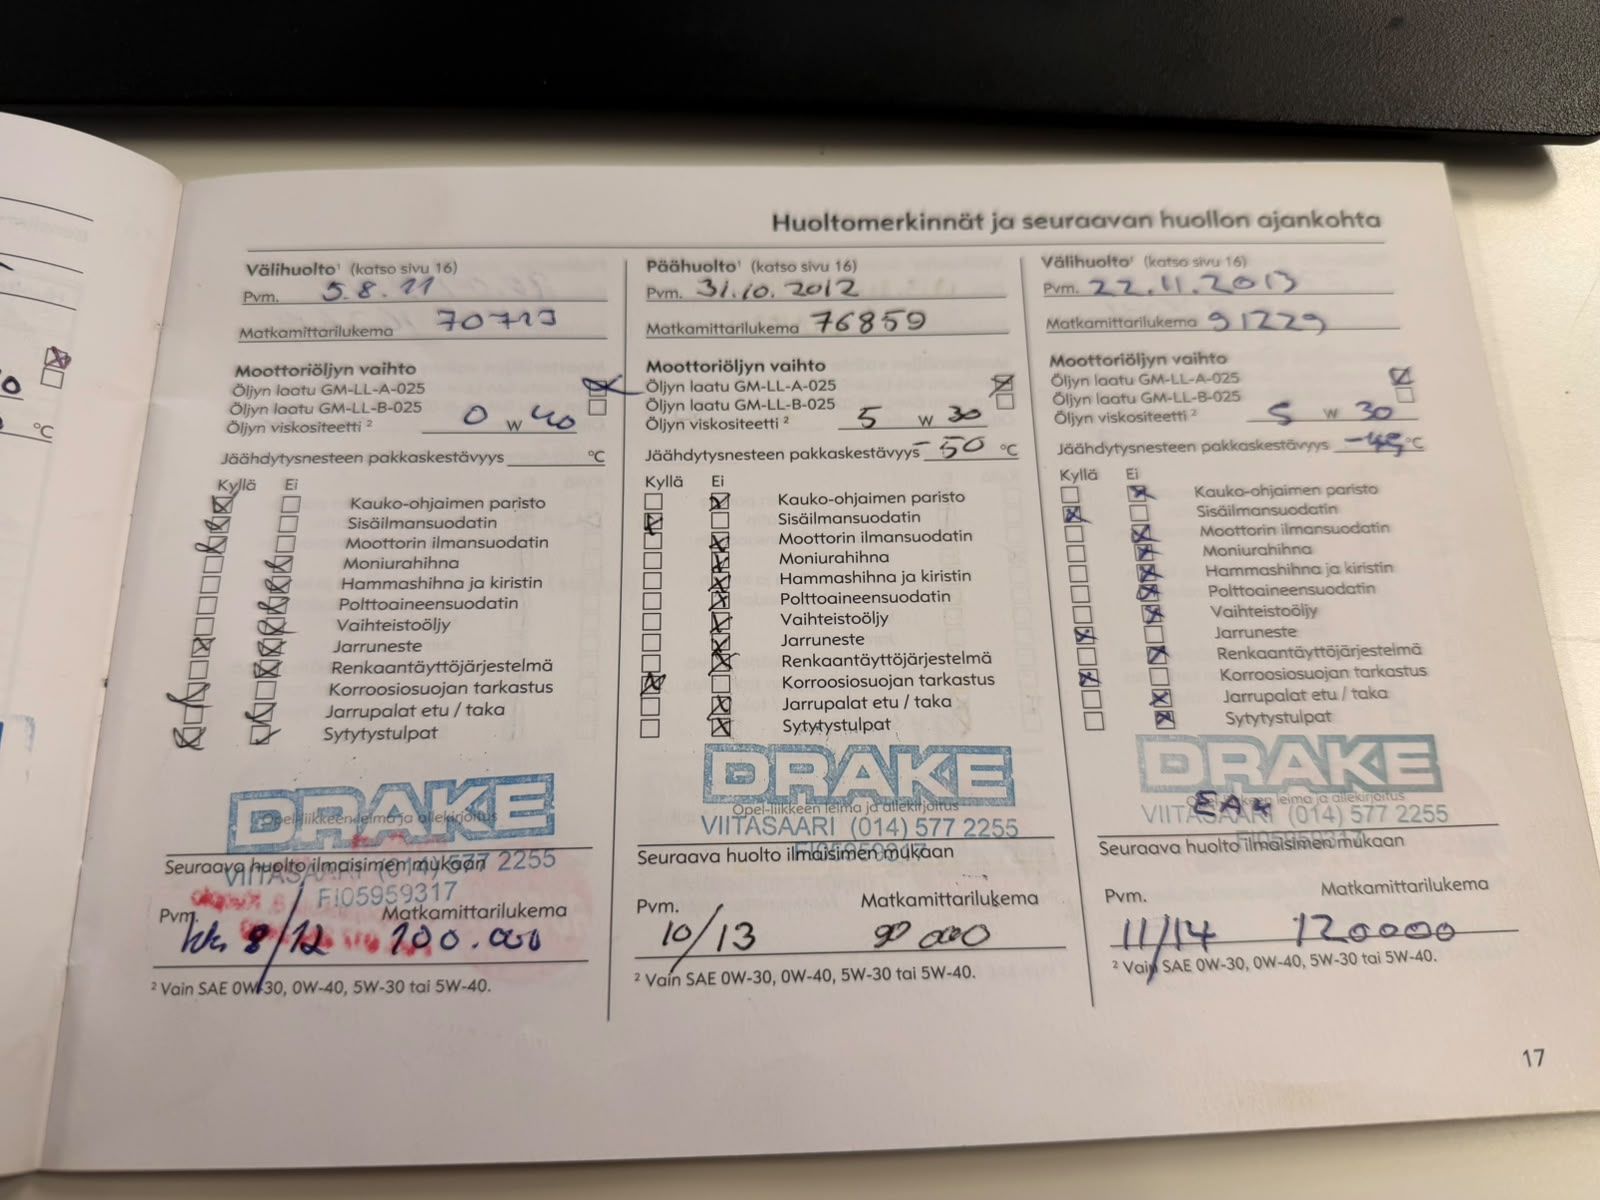 Huoltomerkinnät ja seuraavan huollon ajankohta
Välihuolto¹ (katso sivu 16)
Pvm. 5.8.11
Matkamittarilukema 70713
Moottoriöljyn vaihto
Öljyn laatu GM-LL-A-025
Öljyn laatu GM-LL-B-025
Öljyn viskositeetti ² 0 W 40
Jäähdytysnesteen pakkaskestävyys °C
Kyllä Ei
Kauko-ohjaimen paristo
Sisäilmansuodatin
Moottorin ilmansuodatin
Moniurahihna
Hammashihna ja kiristin
Polttoaineensuodatin
Vaihteistoöljy
Jarruneste
Renkaantäyttöjärjestelmä
Korroosiosuojan tarkastus
Jarrupalat etu / taka
Sytytystulpat
DRAKE
Opel-liikkeen leima ja allekirjoitus
VIITASAARI (014) 577 2255
Seuraava huolto ilmaisimen mukaan
FI05959317
Pvm. 8/12 Matkamittarilukema 100.000
² Vain SAE 0W-30, 0W-40, 5W-30 tai 5W-40.
Päähuolto¹ (katso sivu 16)
Pvm. 31.10.2012
Matkamittarilukema 76859
Moottoriöljyn vaihto
Öljyn laatu GM-LL-A-025
Öljyn laatu GM-LL-B-025
Öljyn viskositeetti ² 5 W 30
Jäähdytysnesteen pakkaskestävyys -50 °C
Kyllä Ei
Kauko-ohjaimen paristo
Sisäilmansuodatin
Moottorin ilmansuodatin
Moniurahihna
Hammashihna ja kiristin
Polttoaineensuodatin
Vaihteistoöljy
Jarruneste
Renkaantäyttöjärjestelmä
Korroosiosuojan tarkastus
Jarrupalat etu / taka
Sytytystulpat
DRAKE
Opel-liikkeen leima ja allekirjoitus
VIITASAARI (014) 577 2255
Seuraava huolto ilmaisimen mukaan
FI05959317
Pvm. Matkamittarilukema
10/13 90 000
² Vain SAE 0W-30, 0W-40, 5W-30 tai 5W-40.
Välihuolto¹ (katso sivu 16)
Pvm. 22.11.2013
Matkamittarilukema 91229
Moottoriöljyn vaihto
Öljyn laatu GM-LL-A-025
Öljyn laatu GM-LL-B-025
Öljyn viskositeetti ² 5 W 30
Jäähdytysnesteen pakkaskestävyys °C
Kyllä Ei
Kauko-ohjaimen paristo
Sisäilmansuodatin
Moottorin ilmansuodatin
Moniurahihna
Hammashihna ja kiristin
Polttoaineensuodatin
Vaihteistoöljy
Jarruneste
Renkaantäyttöjärjestelmä
Korroosiosuojan tarkastus
Jarrupalat etu / taka
Sytytystulpat
DRAKE
Opel-liikkeen leima ja allekirjoitus
VIITASAARI (014) 577 2255
FI05959317
Seuraava huolto ilmaisimen mukaan
Pvm. Matkamittarilukema
11/14 120000
² Vain SAE 0W-30, 0W-40, 5W-30 tai 5W-40.
17
°C